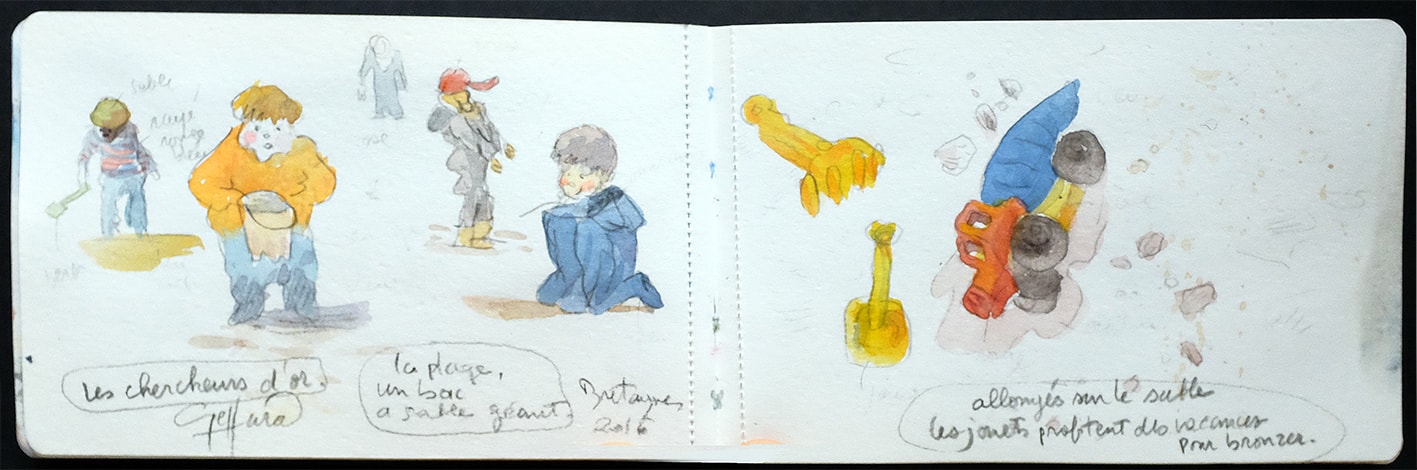 sable
rayé
rouge
les chercheurs d'or.
Geffara
la plage,
un bac
a sable géant.
Bretagnes
2016
allongés sur le sable
les jouets profitent des vacances
pour bronzer.